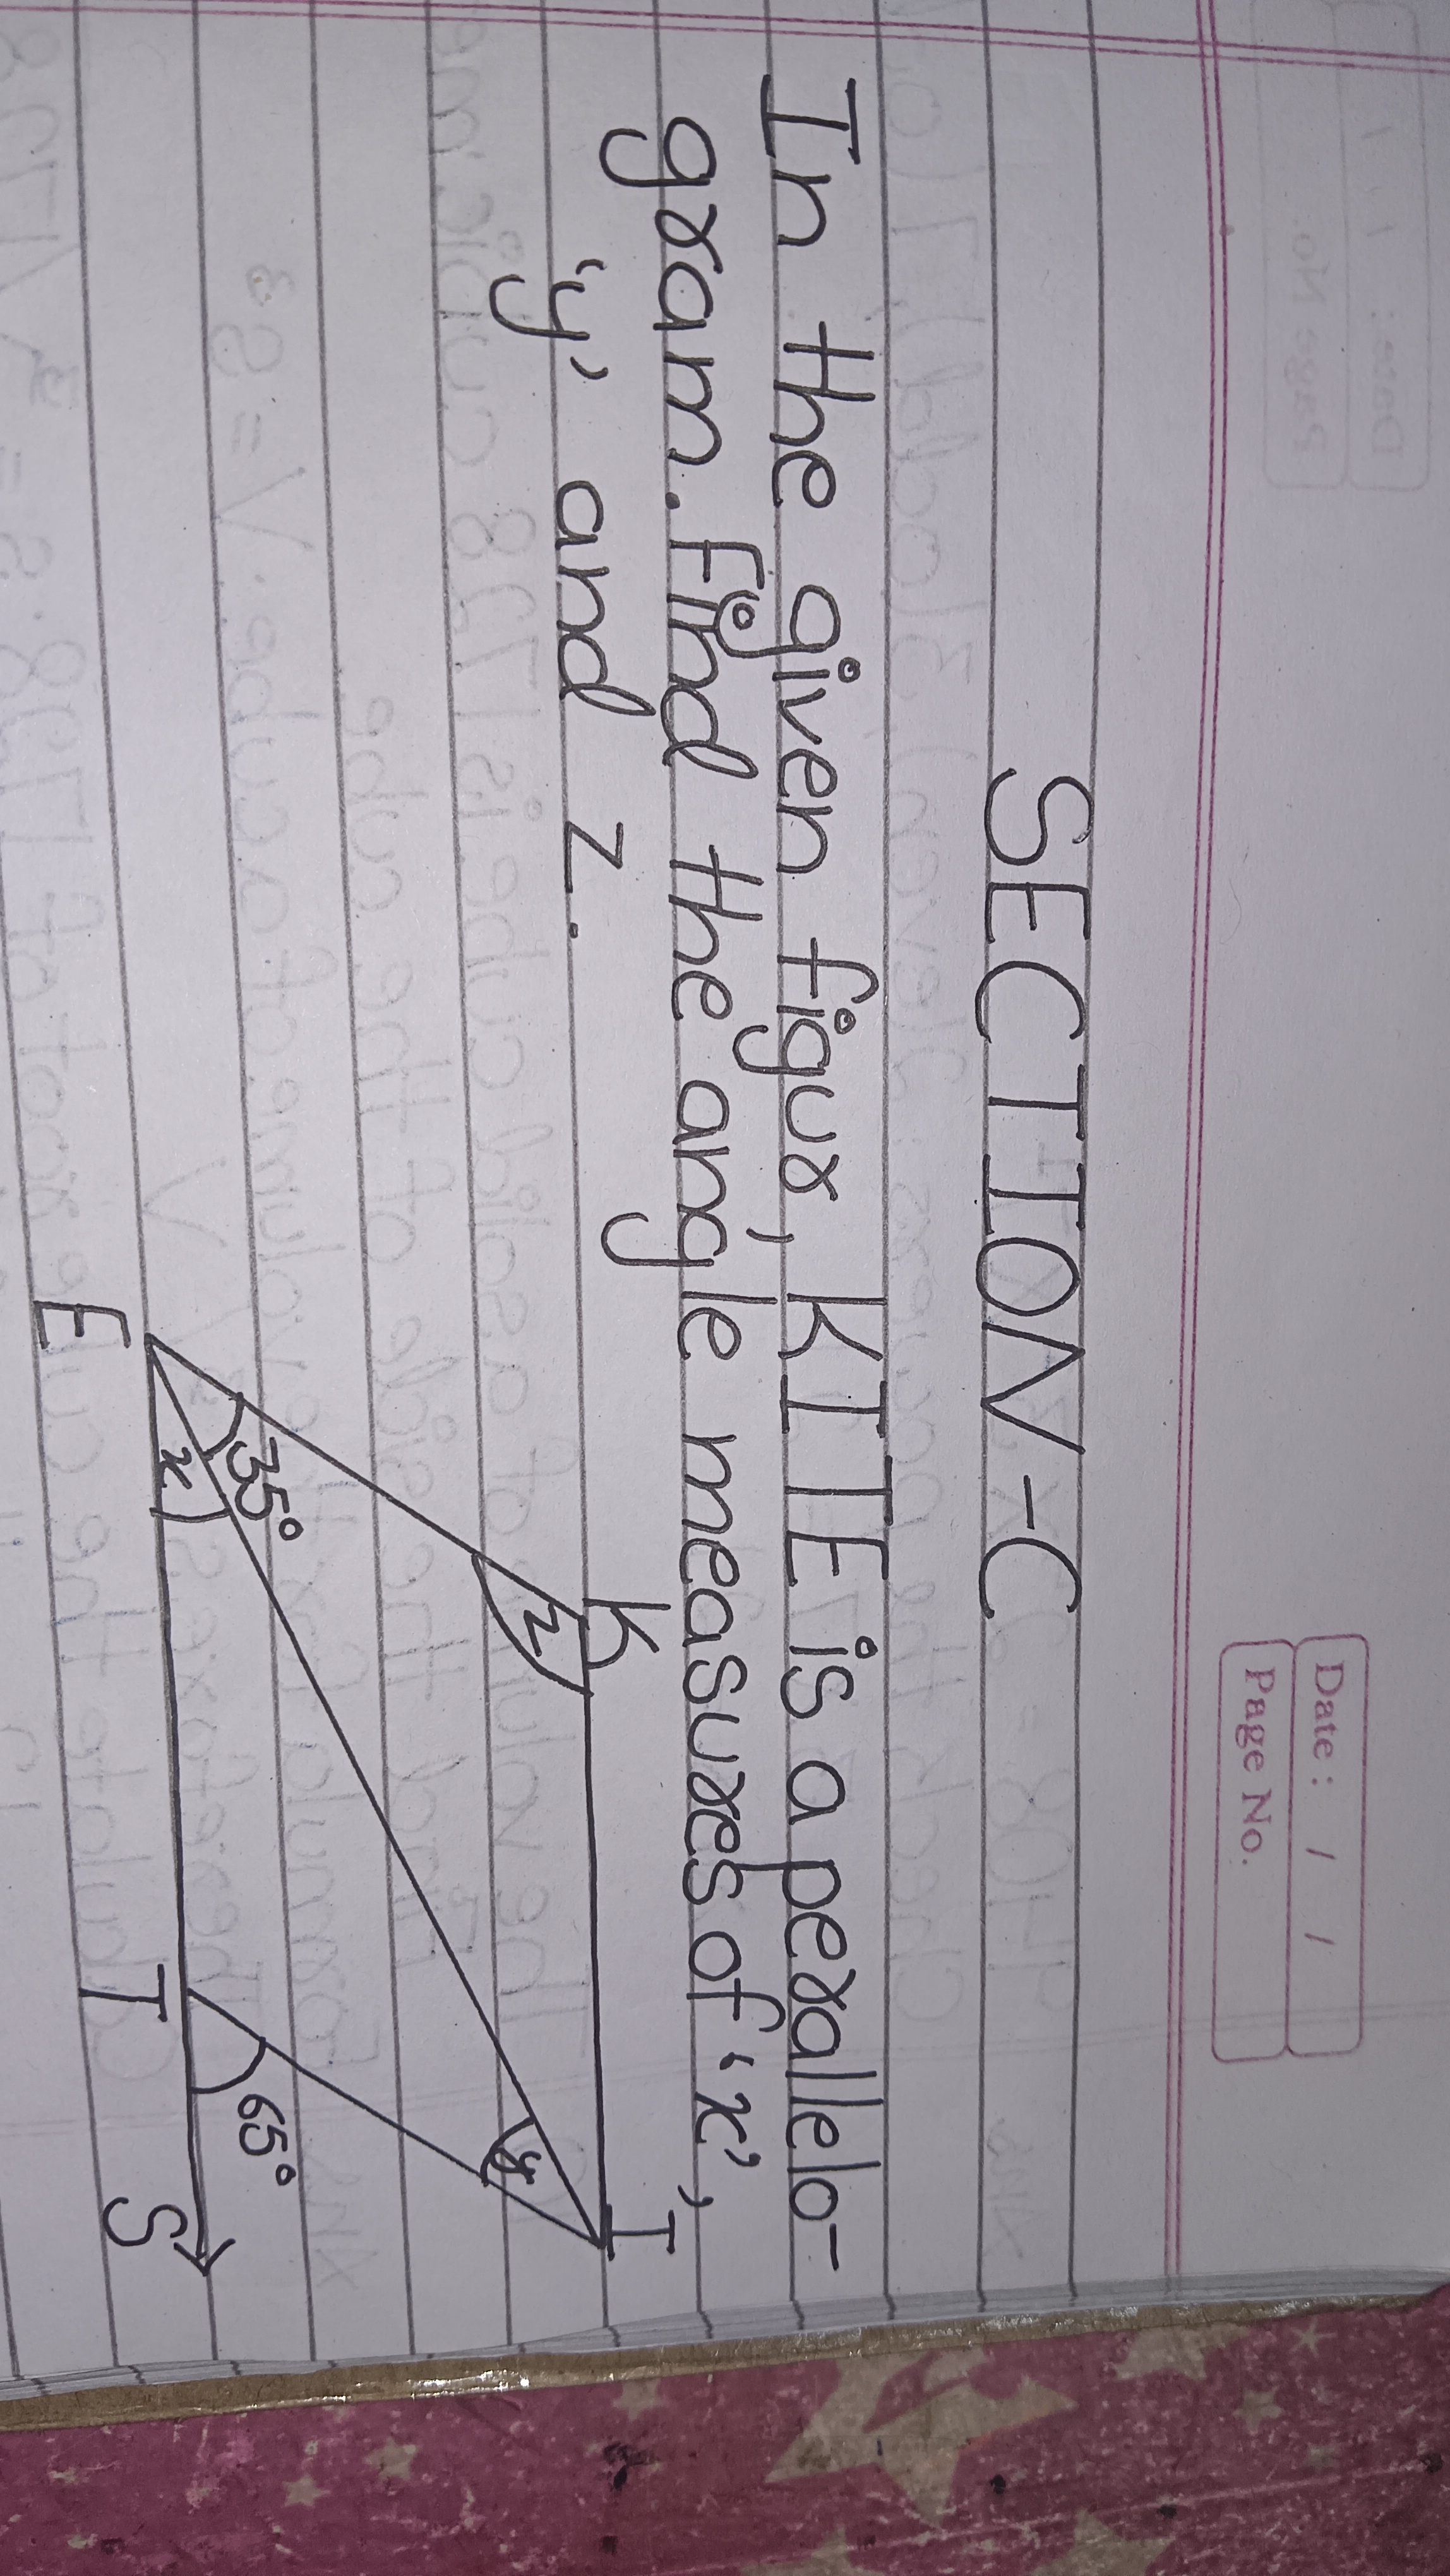 Date : / /
Page No.
SECTION-C
In the given figur, KITE is a perallelo-
gram. Find the angle measures of 'x',
'y' and z.
K I
z y
35° 65°
x
E T S